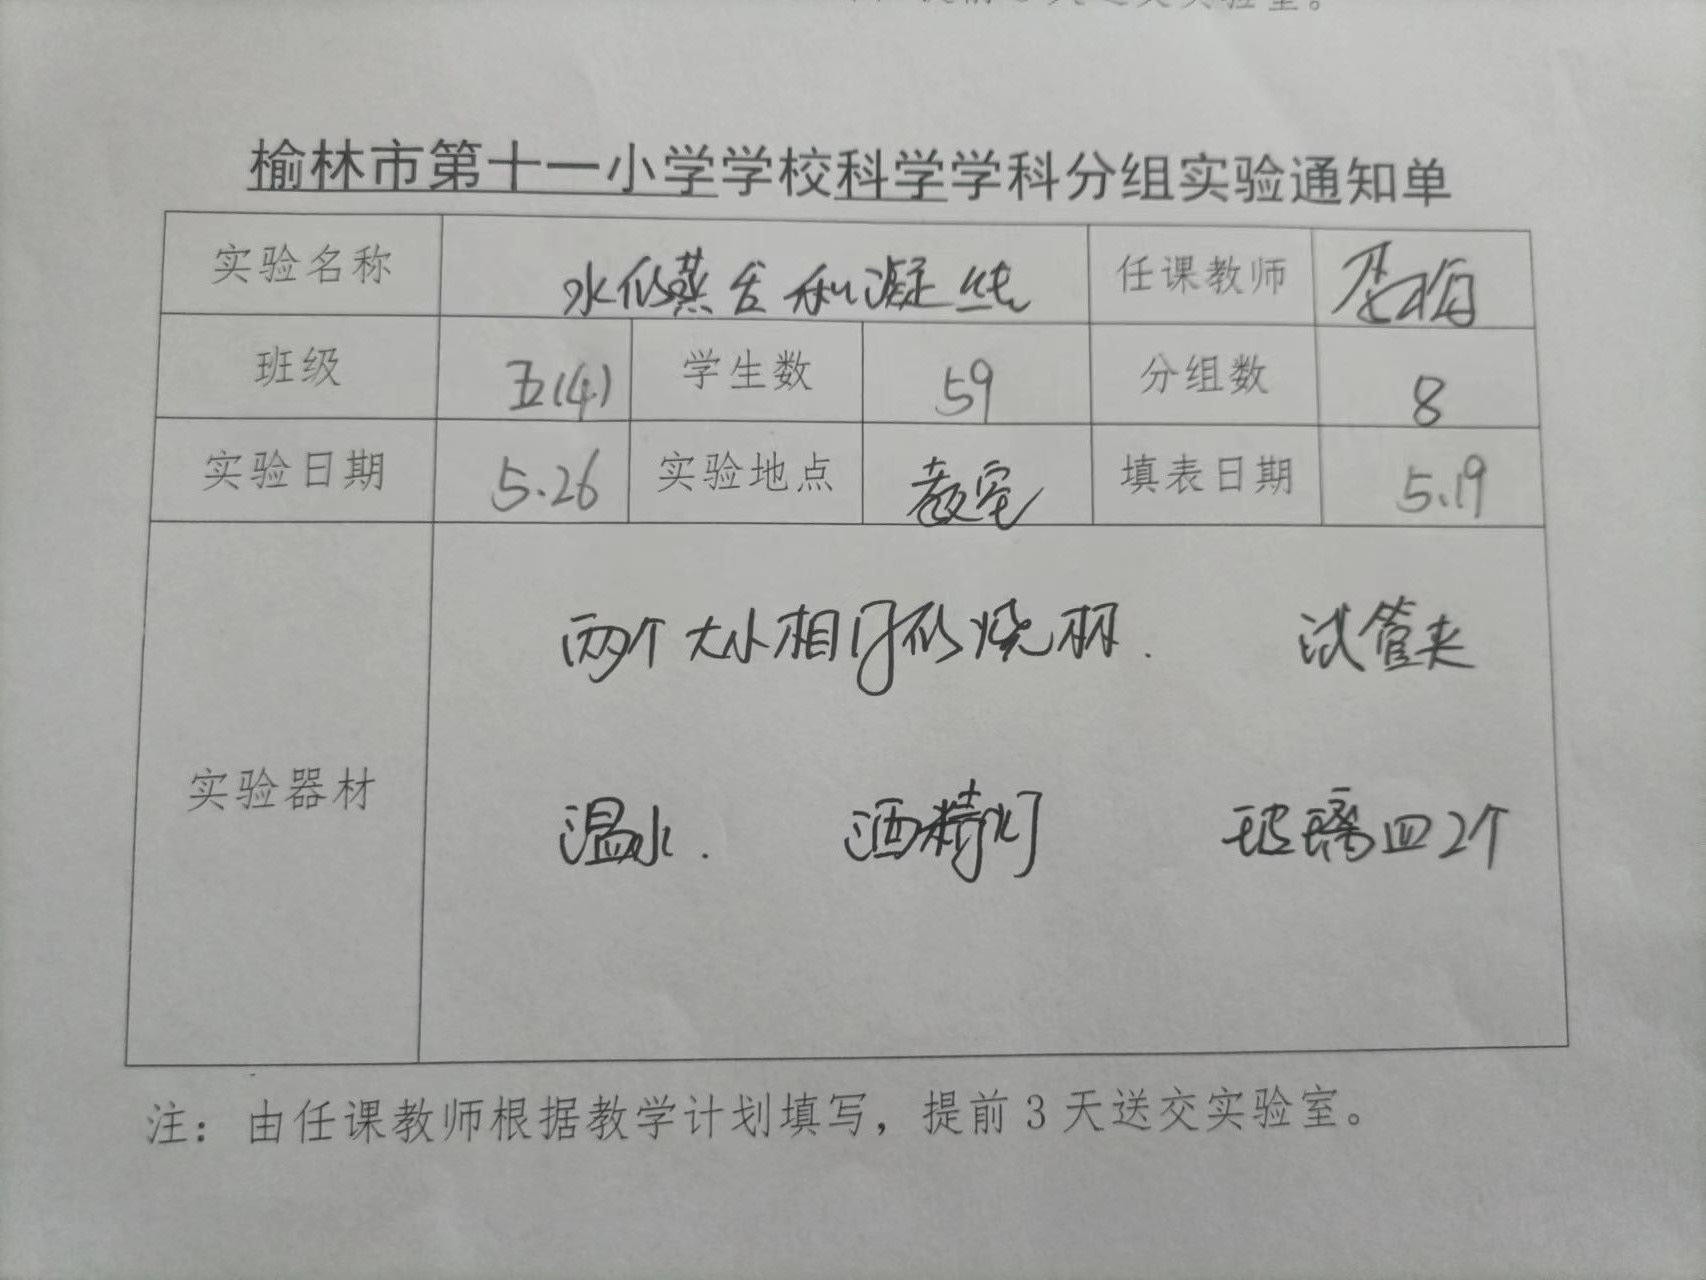 榆林市第十一小学学校科学学科分组实验通知单
实验名称 水的蒸发和凝结 任课教师
班级 五(4) 学生数 59 分组数 8
实验日期 5.26 实验地点 教室 填表日期 5.19
实验器材
两个大小相同的烧杯. 试管夹
温水. 酒精灯 玻璃皿2个
注：由任课教师根据教学计划填写，提前3天送交实验室。